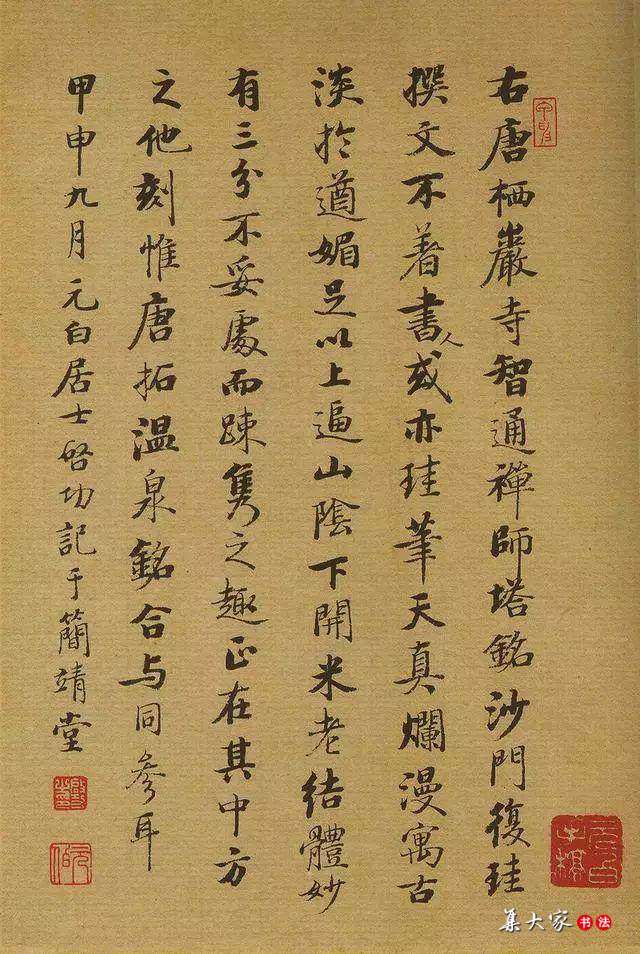 右唐栖巖寺智通禪師塔銘沙門復珪
撰文不着書人或亦珪筆天真爛漫寓古
淡於遒媚足以上逼山陰下開米老結體妙
有三分不妥處而踈雋之趣正在其中方
之他刻惟唐拓温泉銘合与同參耳
甲申九月元白居士啓功記于簡靖堂
集大家书法